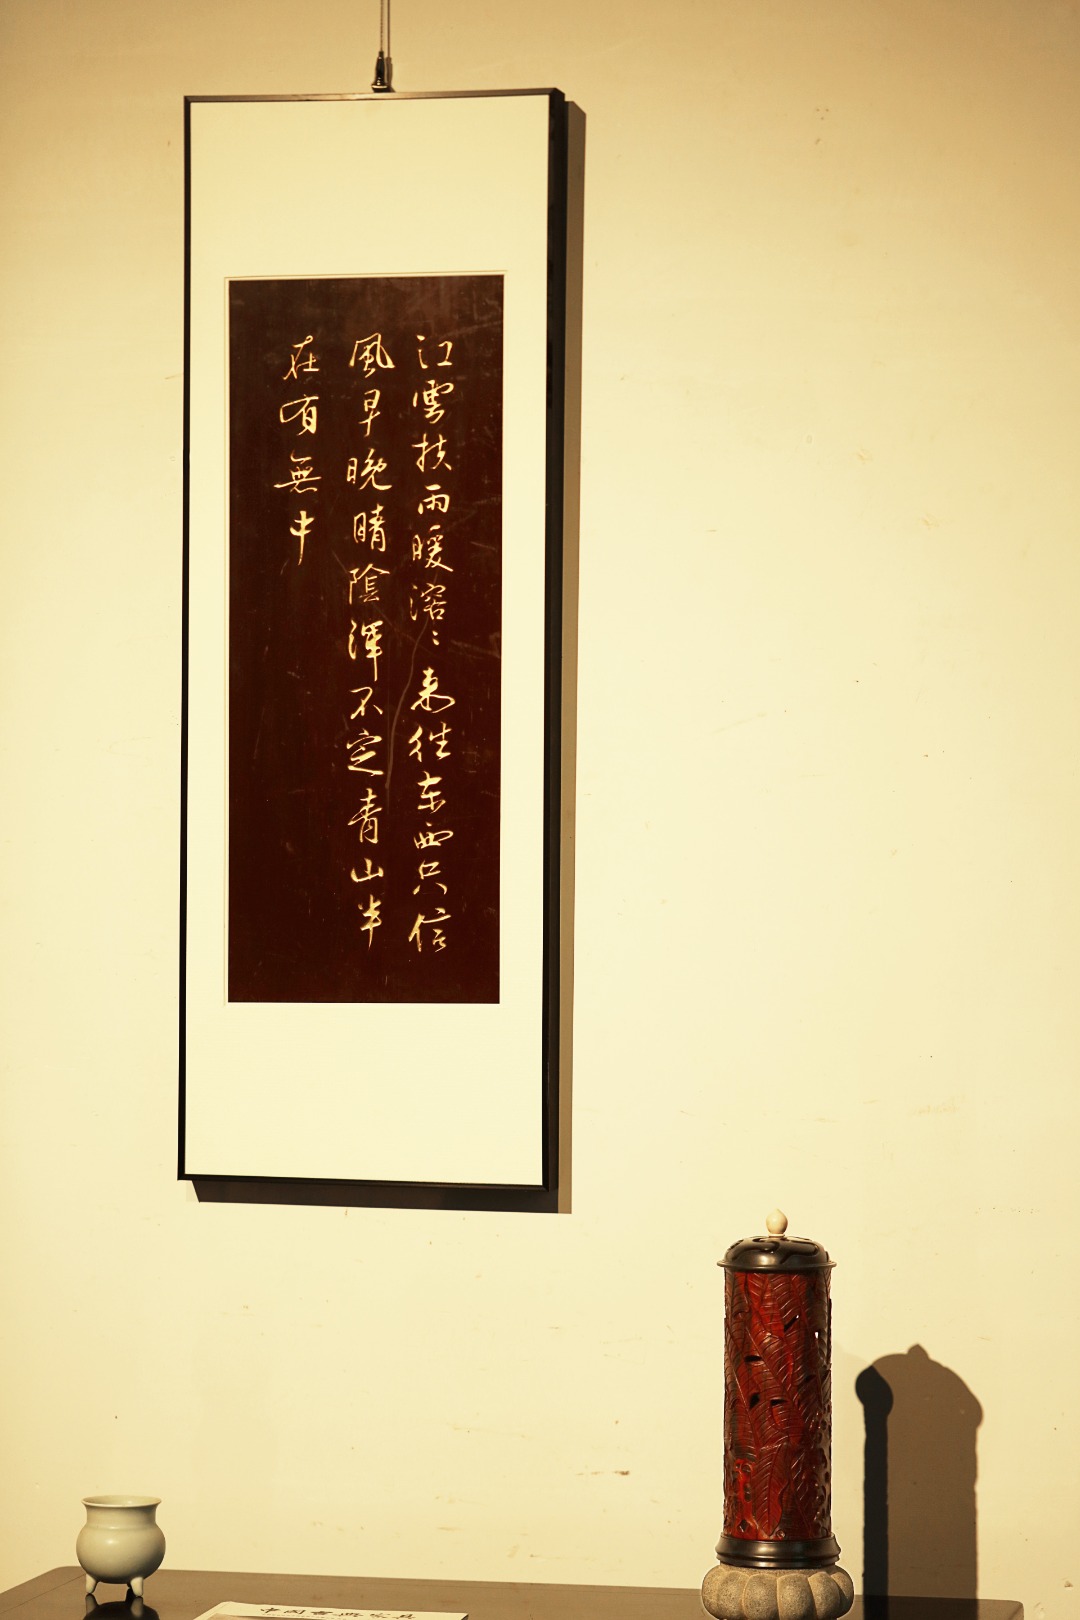 江雲挟雨暖溶〻来往东西只信
風早晚晴陰渾不定青山半
在有無中